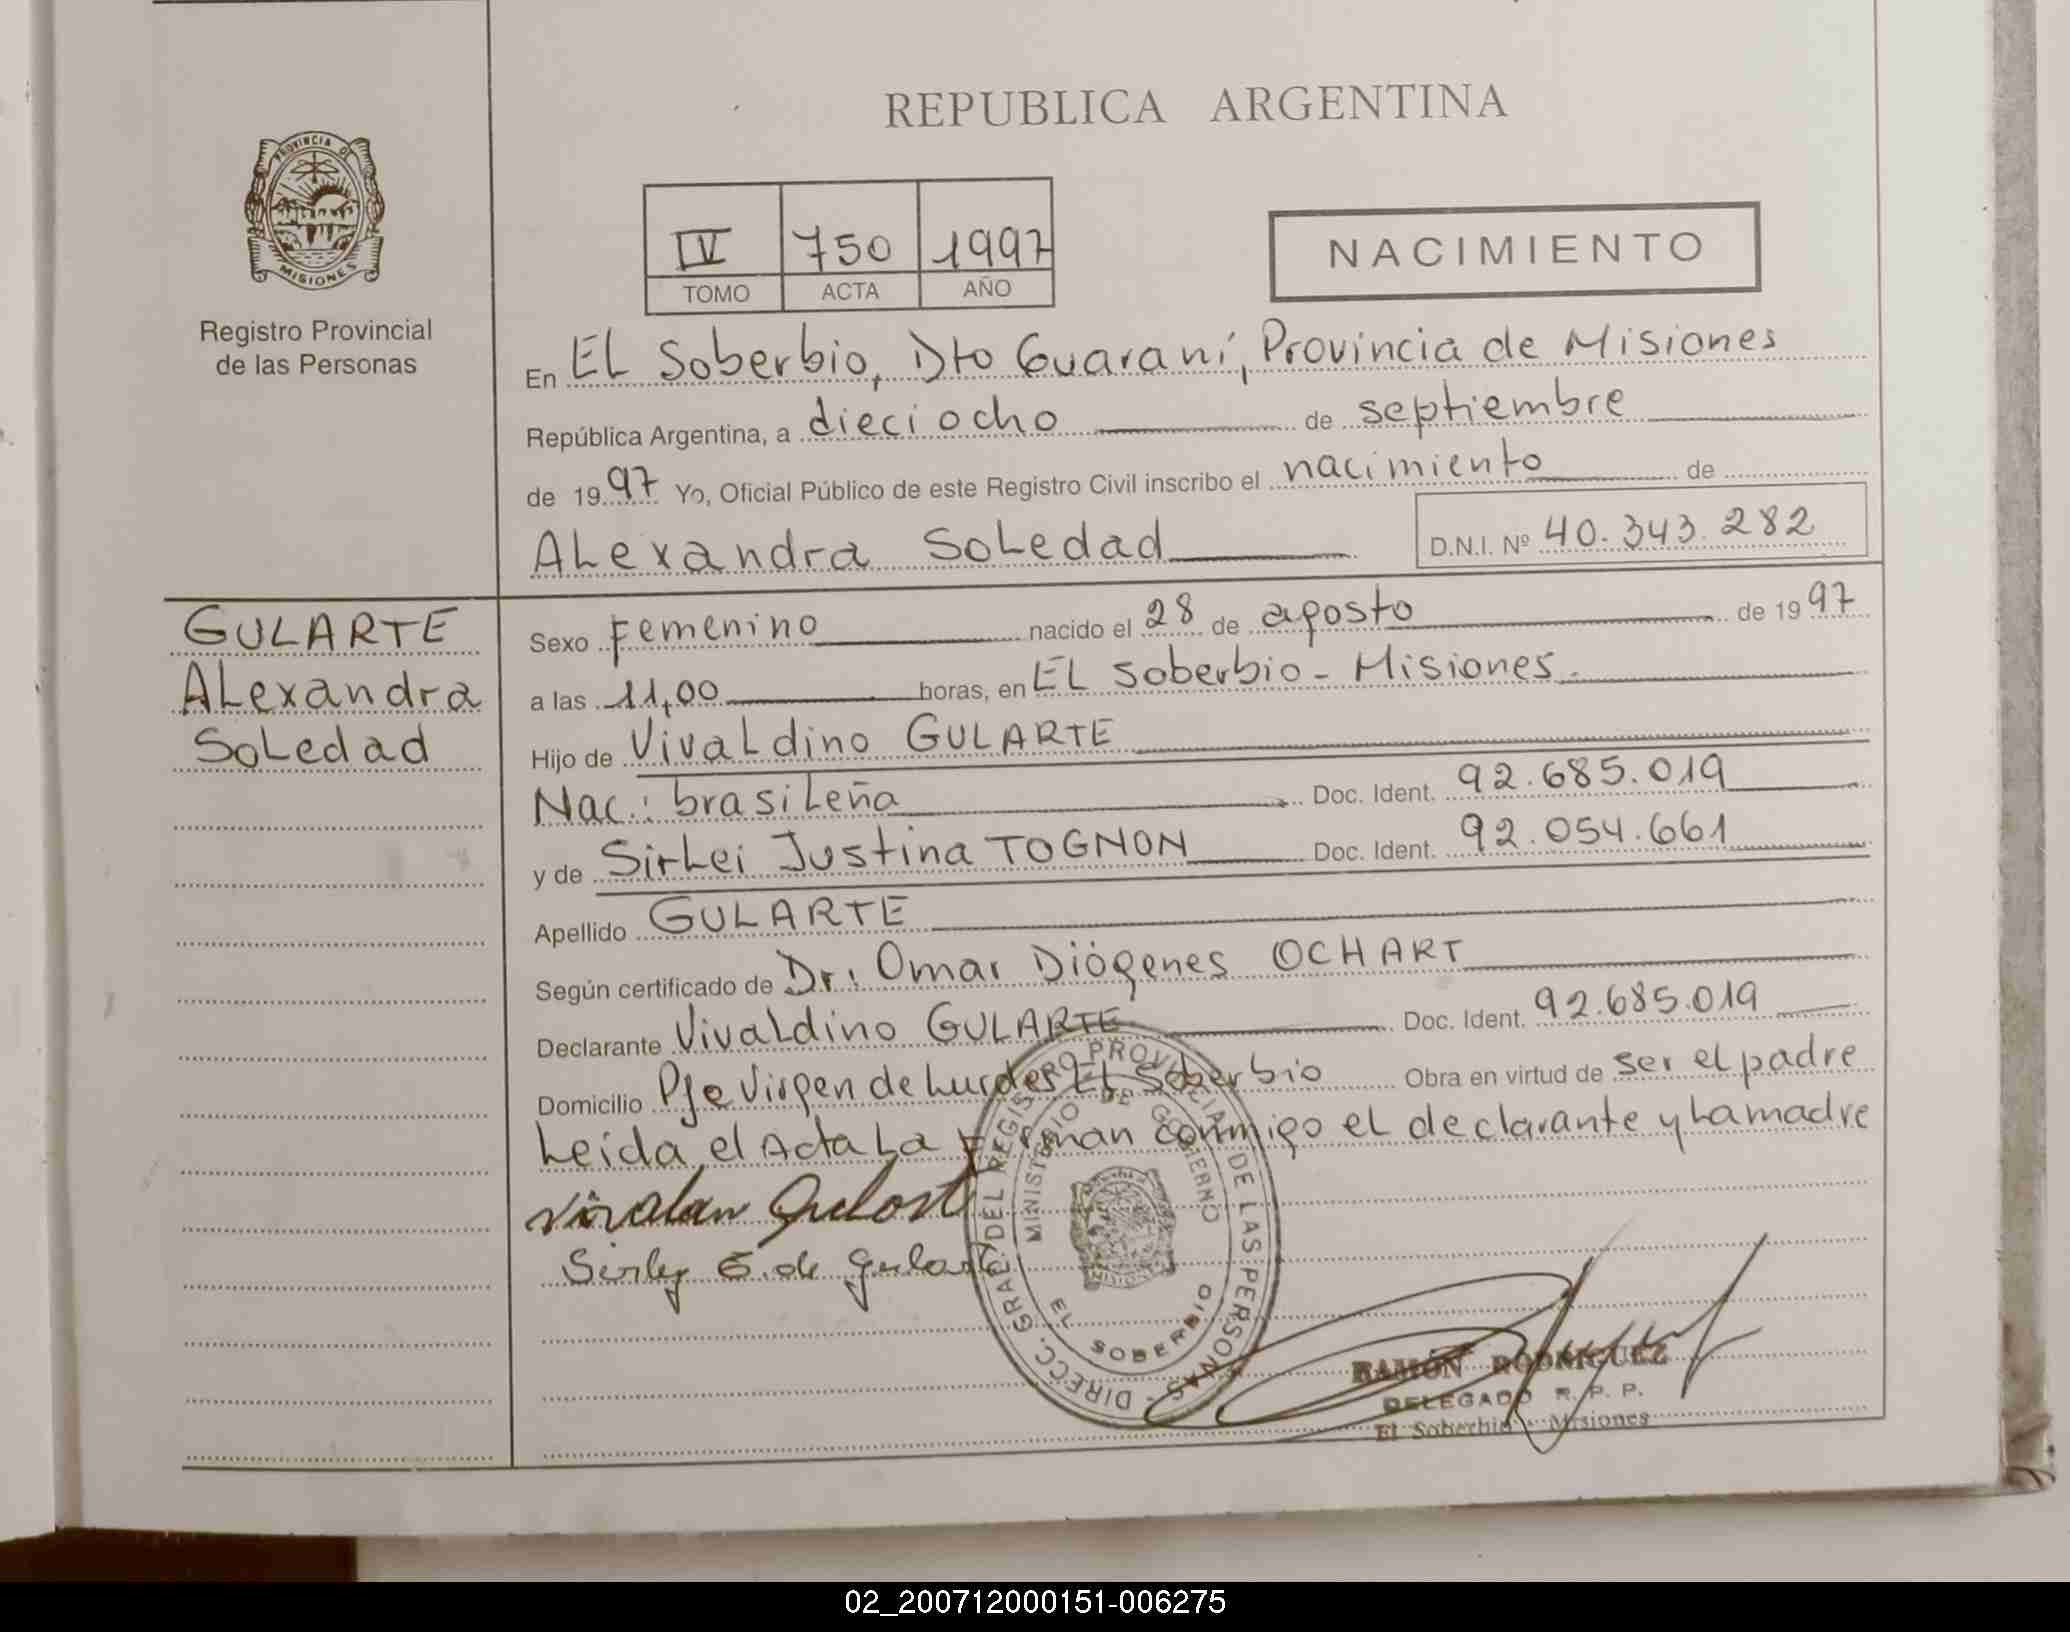 REPUBLICA ARGENTINA
PROVINCIA DE
MISIONES
Registro Provincial
de las Personas
IV 750 1997
TOMO ACTA AÑO
NACIMIENTO
En EL Soberbio, Dto Guaraní, Provincia de Misiones
República Argentina, a dieciocho de septiembre
de 1997 Yo, Oficial Público de este Registro Civil inscribo el nacimiento de
ALexandra SoLedad D.N.I. Nº 40.343.282
GULARTE
ALexandra
SoLedad
Sexo Femenino nacido el 28 de agosto de 1997
a las 11,00 horas, en EL Soberbio - Misiones.
Hijo de VivaLdino GULARTE
Nac.: brasiLeña Doc. Ident. 92.685.019
y de SirLei Justina TOGNON Doc. Ident. 92.054.661
Apellido GULARTE
Según certificado de Dr. Omar Diógenes OCHART
Declarante VivaLdino GULARTE Doc. Ident. 92.685.019
Domicilio Pje Virgen de Lurdes EL Soberbio Obra en virtud de ser eL padre
Leida el Acta La Firman conmigo eL declarante y La madre
Sirley de
DIRECC. GRAL. DEL REGISTRO PROVINCIAL DE LAS PERSONAS -
MINISTERIO DE GOBIERNO
MISIONES
EL SOBERBIO
RAMÓN RODRIGUEZ
DELEGADO R. P. P.
El Soberbio - Misiones
02_200712000151-006275